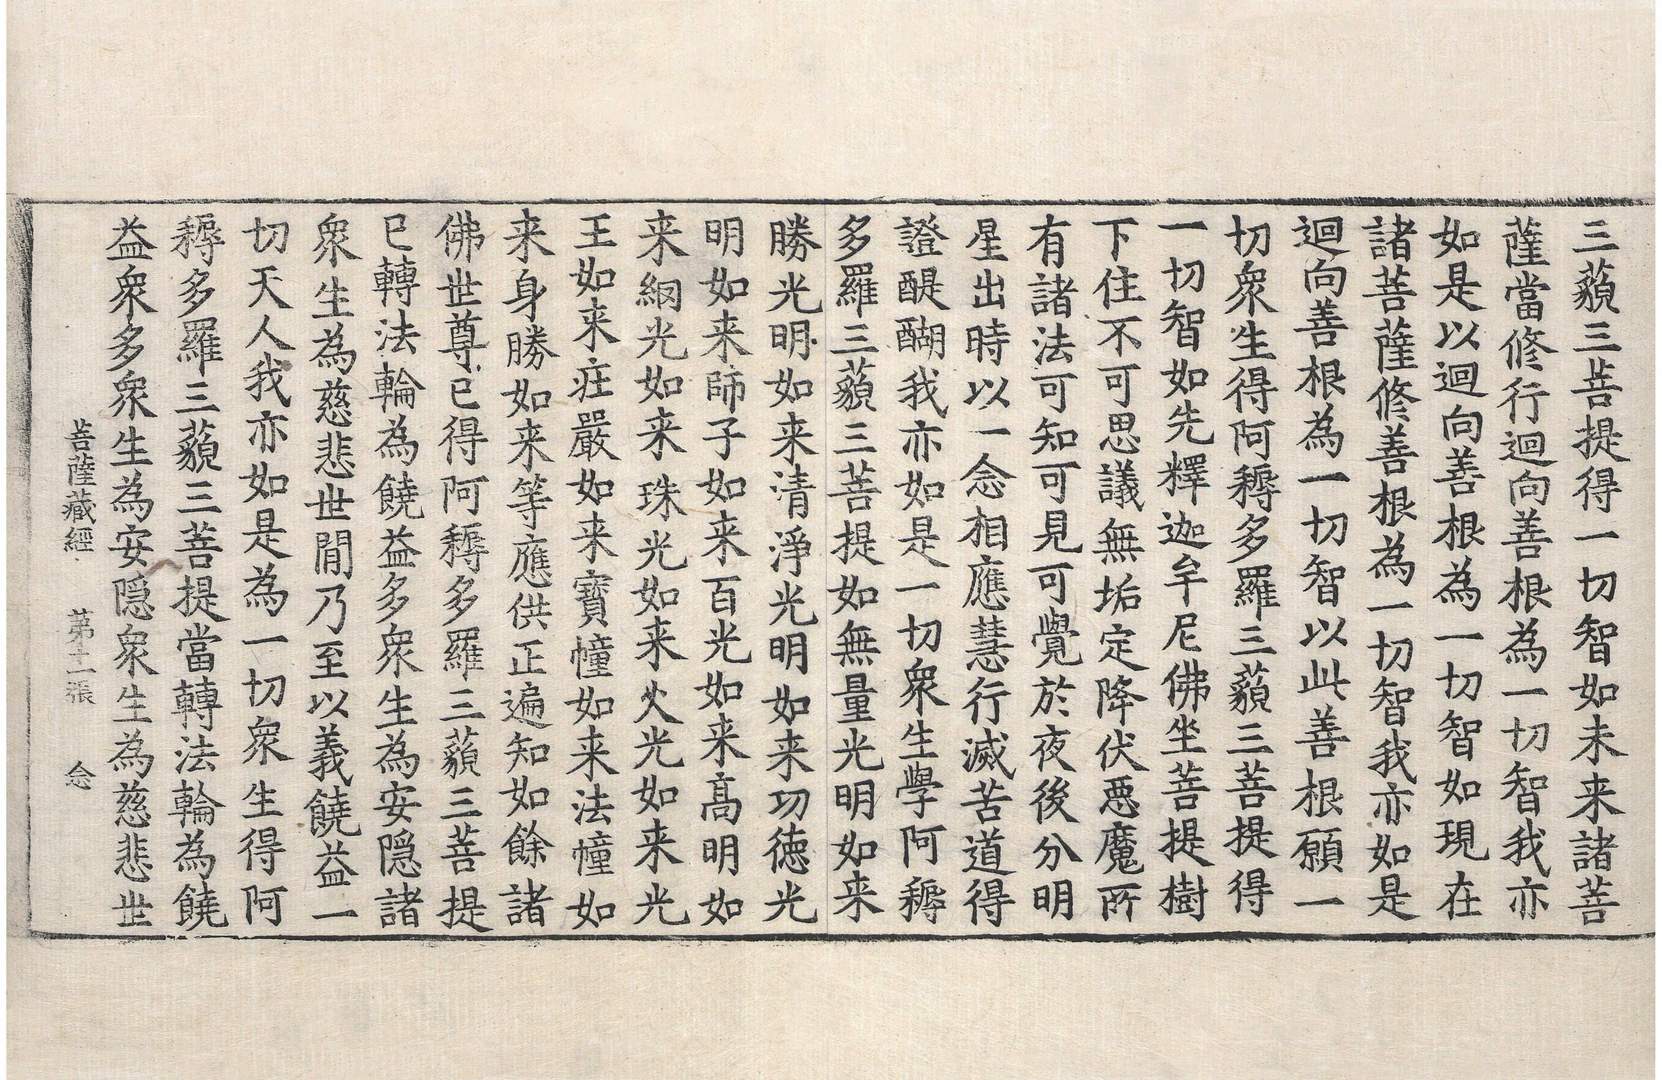 三藐三菩提得一切智如未来諸菩
薩當修行迴向善根為一切智我亦
如是以迴向善根為一切智如現在
諸菩薩修善根為一切智我亦如是
迴向善根為一切智以此善根願一
切衆生得阿耨多羅三藐三菩提得
一切智如先釋迦牟尼佛坐菩提樹
下住不可思議無垢定降伏惡魔所
有諸法可知可見可覺於夜後分明
星出時以一念相應慧行滅苦道得
證醍醐我亦如是一切衆生學阿耨
多羅三藐三菩提如無量光明如来
勝光明如来清淨光明如来功德光
明如来師子如来百光如来高明如
来網光如来珠光如来火光如来光
王如来莊嚴如来寶幢如来法幢如
来身勝如来等應供正遍知如餘諸
佛世尊已得阿耨多羅三藐三菩提
已轉法輪為饒益多衆生為安隱諸
衆生為慈悲世間乃至以義饒益一
切天人我亦如是為一切衆生得阿
耨多羅三藐三菩提當轉法輪為饒
益衆多衆生為安隱衆生為慈悲世
菩薩藏經 第十二張 念